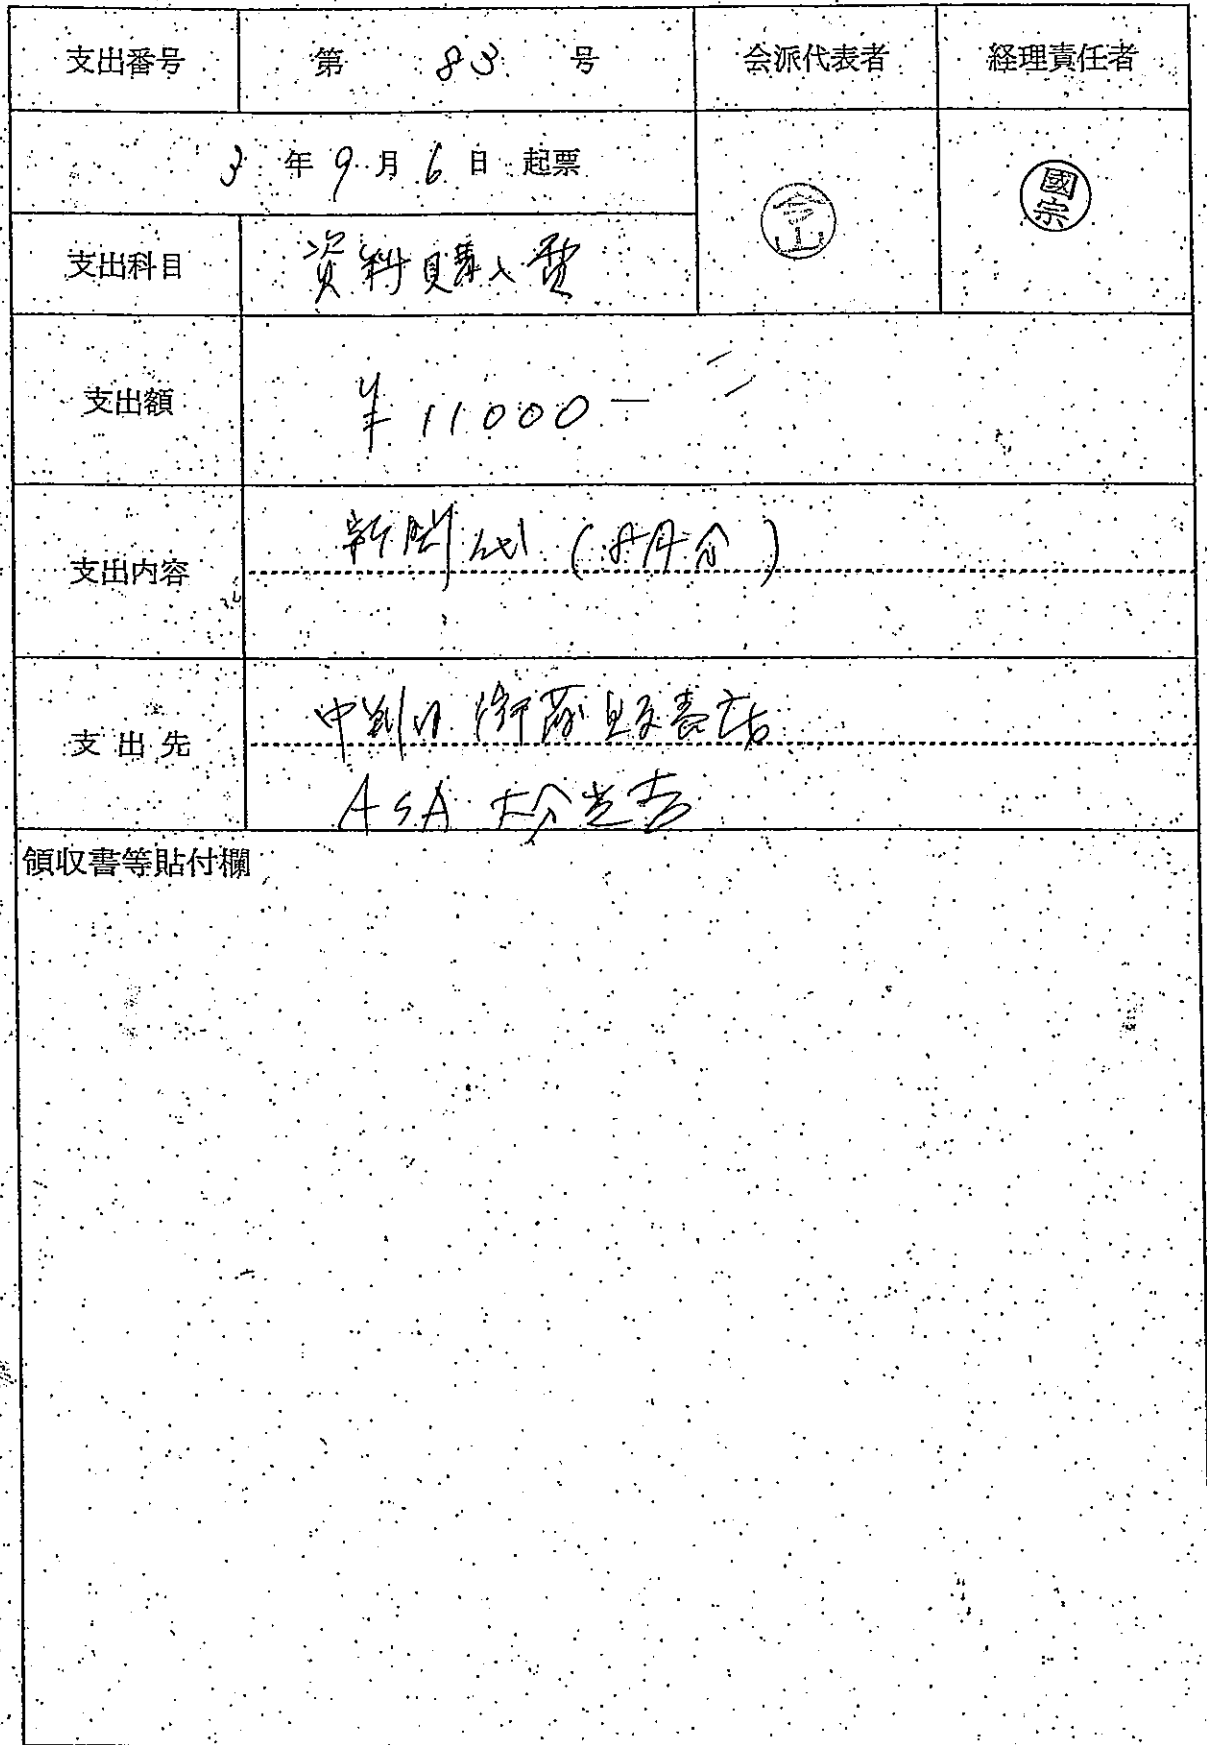 支出番号 第 83 号 会派代表者 経理責任者
3 年 9 月 6 日 起票
今山
國宗
支出科目 資料購入費
支出額 ¥11000-
支出内容 新聞代 (8月分)
支出先 中判田 衛藤販売店
ASA 大分光吉
領収書等貼付欄